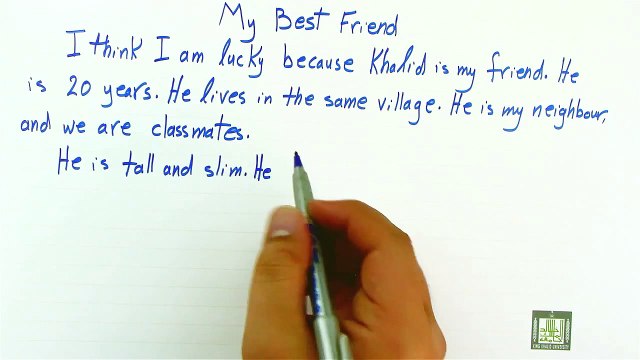 My Best Friend
I think I am lucky because Khalid is my friend. He
is 20 years. He lives in the same village. He is my neighbour,
and we are classmates.
He is tall and slim. He
KING KHALID UNIVERSITY